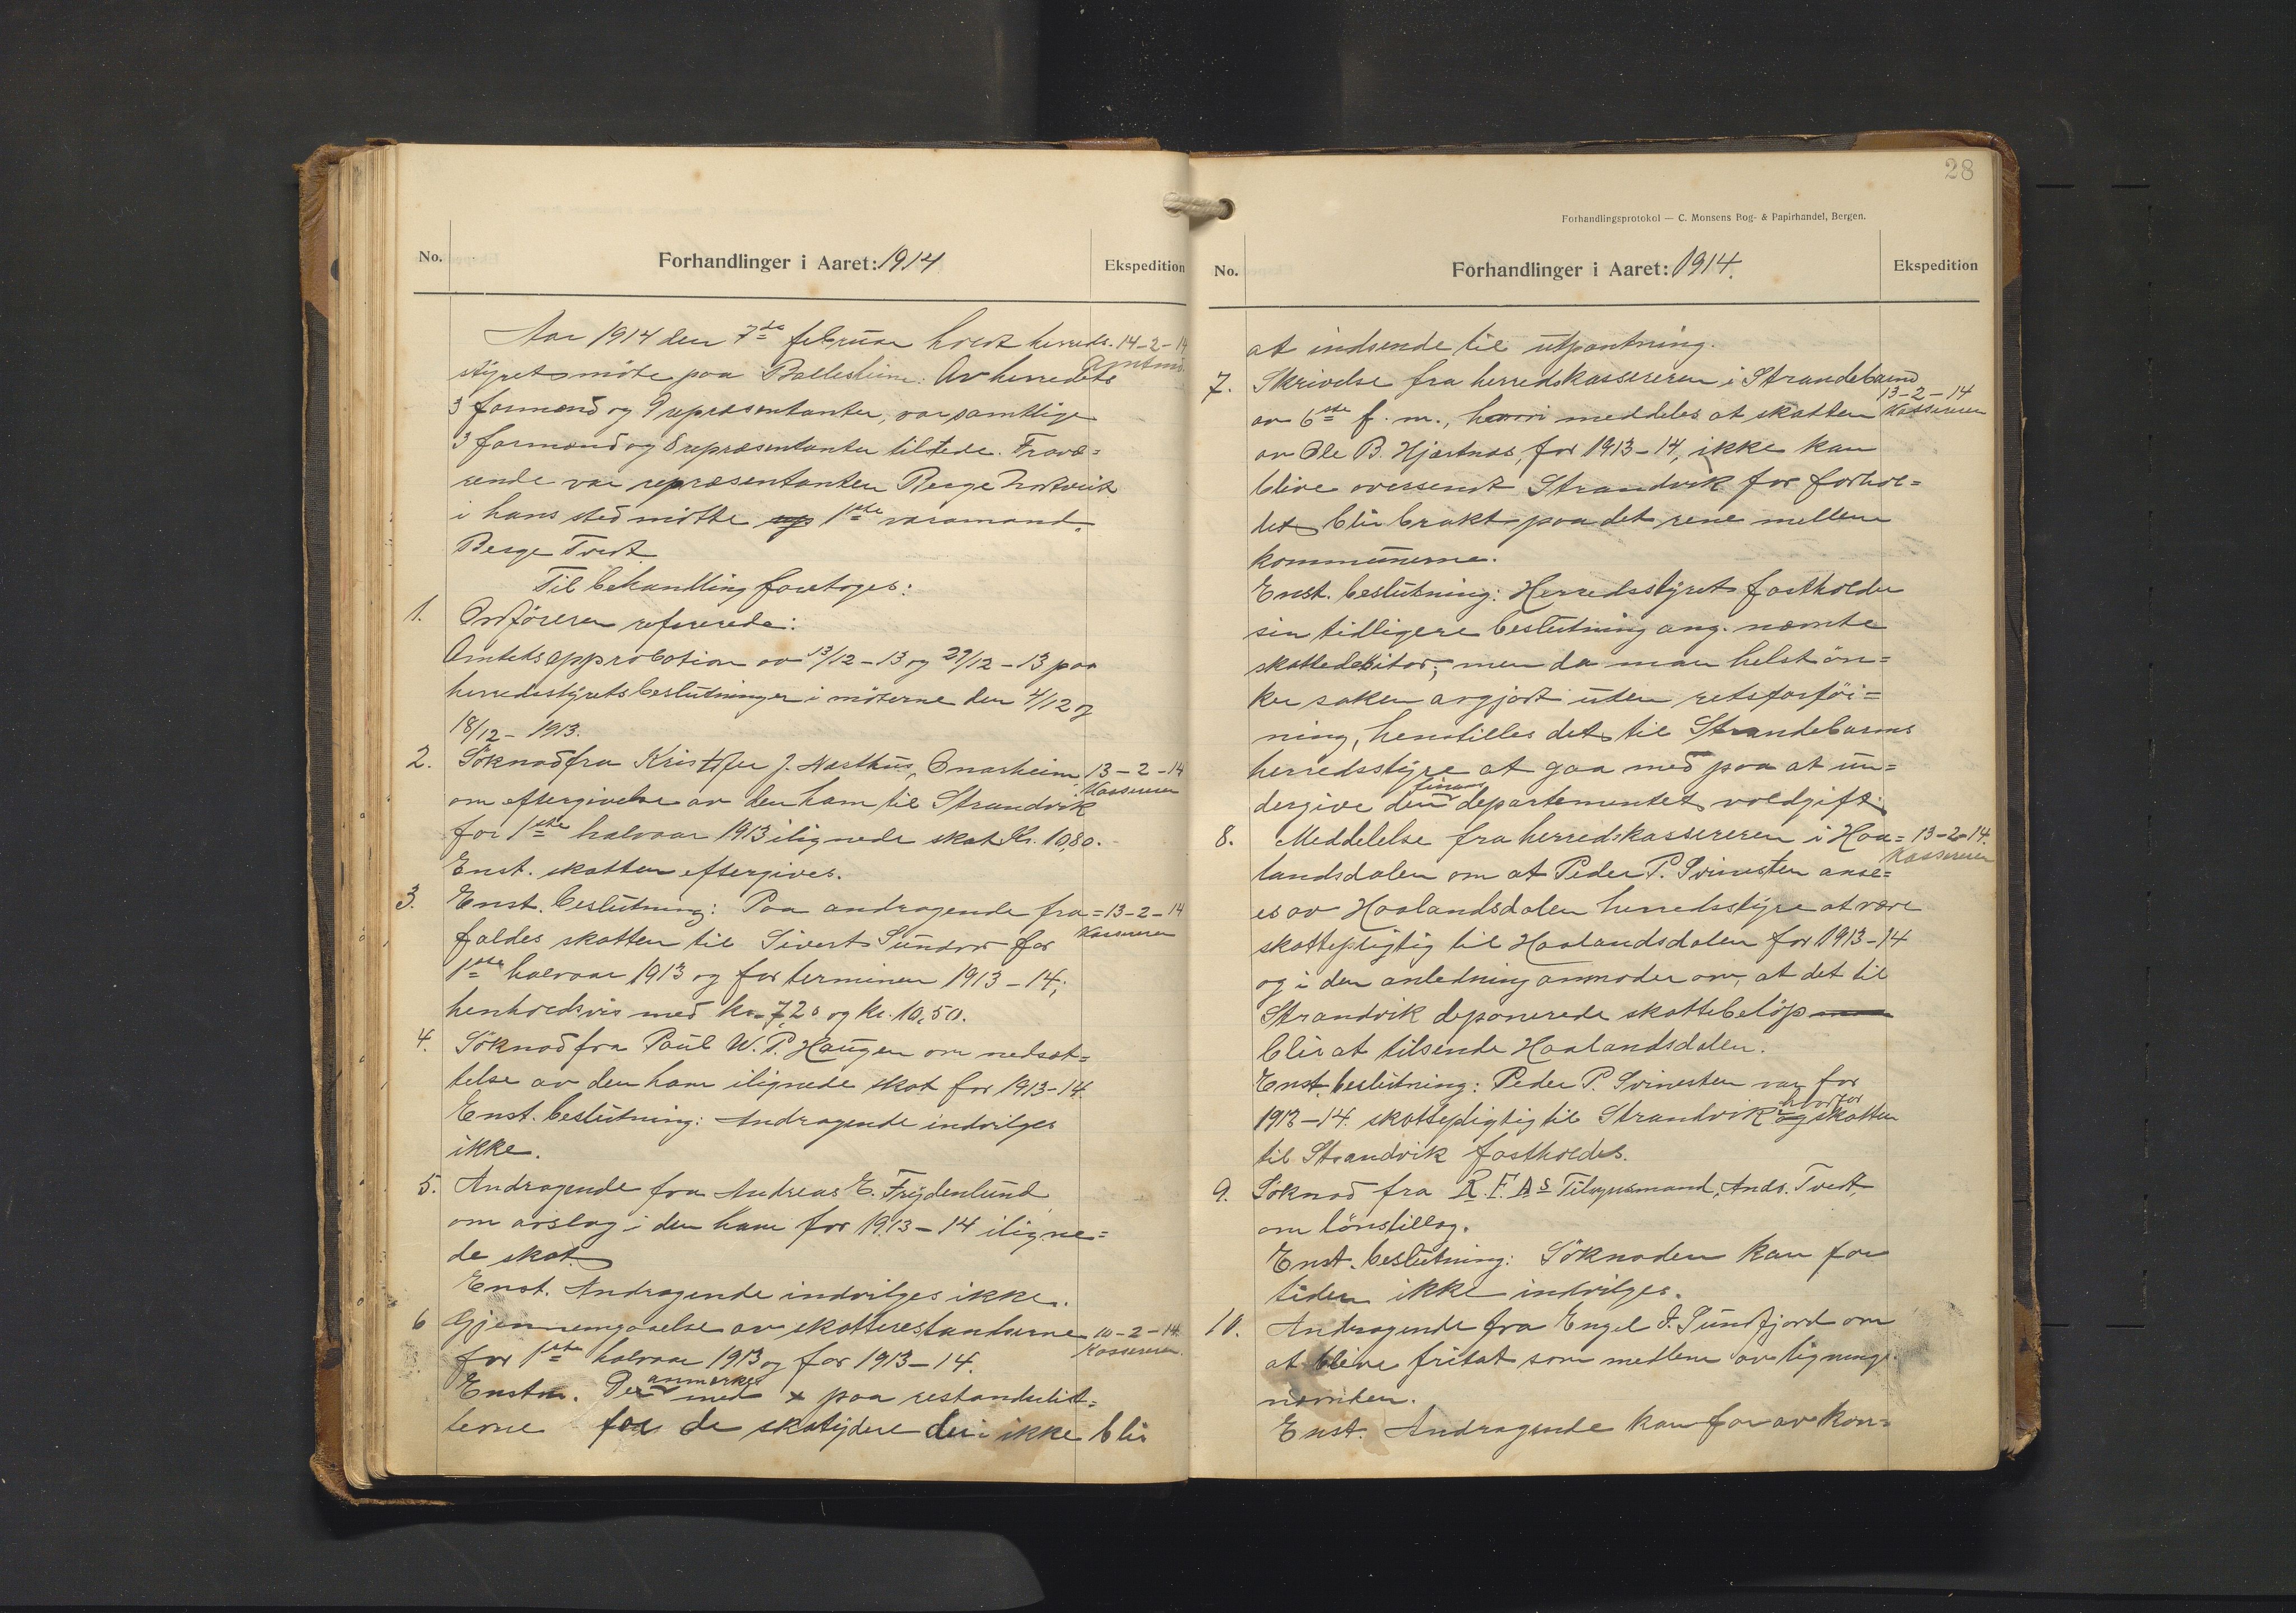 No.
Forhandlinger i Aaret: 1914
Ekspedition
Aar 1914 den 7de februar holdt herreds- 14-2-14
styret møte paa Ballesheim. Av herredets Amtmd.
3 formænd og 9 repræsentanter, var samtlige
3 formænd og 8 repræsentanter tilstede. Fravæ=
rende var repræsentanten Berge
i hans sted møtte 1ste varamand
Berge Tvedt
Til behandling foretoges:
1. Ordføreren refererede:
Amtets approbation av 13/12-13 og 29/12-13 paa
herredsstyrets beslutninger i møterne den 4/12 og
18/12 - 1913.
2. Söknad fra Kristofer J. Nasthus, Onarheim 13-2-14
om eftergivelse av den ham til Strandvik Kassereren
for 1ste halvaar 1913 ilignede skat Kr. 10,80.
Enst. skatten eftergives.
3. Enst. beslutning: Paa andragende fra= 13-2-14
faldes skatten til Sivert Sundvor for Kassereren
1ste halvaar 1913 og for terminen 1913-14;
henholdsvis med kr. 7,20 og kr. 10,50.
4. Söknad fra Paul W. P. Haugen om nedsæt=
telse av den ham ilignede skat for 1913-14.
Enst. beslutning: Andragende indvilges
ikke.
5. Andragende fra Andreas E. Frydenlund
om avslag i den ham for 1913-14 iligne=
de skat.
Enst. Andragende indvilges ikke.
6 Gjennemgaaelse av skatterestanserne 10-2-14
for 1ste halvaar 1913 og for 1913-14. Kassereren.
anmerkes
Enstm. Der med x paa restanselist=
terne for de skatydere der ikke blir
28
Forhandlingsprotokol — C. Monsens Bog- & Papirhandel, Bergen.
No.
Forhandlinger i Aaret: 1914.
Ekspedition
at indsende til utpantning.
7. Skrivelse fra herredskassereren i Strandebarm
13-2-14
av 6te f. m., hvori meddeles at skatten Kassereren
av Ole B. Hjartnes, for 1913-14, ikke kan
blive oversendt Strandvik før forhol=
det blir brakt paa det rene mellem
kommunerne.
Enst. beslutning: Herredsstyret fastholder
sin tidligere beslutning ang. nævnte
skattedebitor; men da man helst øn=
ker saken avgjort uten retsforføi=
ning, henstilles det til Strandebarms
herredsstyre at gaa med paa at un=
finans
dergive den departementet voldgift.
8. Meddelelse fra herredskassereren i Haa= 13-2-14.
landsdalen om at Peder P. Svinesten anse= Kassereren
es av Haalandsdalen herredsstyre at være
skattepligtig til Haalandsdalen for 1913-14
og i den anledning anmoder om, at det til
Strandvik deponerede skattebelöp
blir at tilsende Haalandsdalen.
Enst. beslutning: Peder P. Svinesten var for
hvorfor
1913-14. skattepligtig til Strandvik og skatten
til Strandvik fastholdes.
9. Söknad fra R. F. As Tilsynsmand, Ands. Tvedt,
om lönstillæg.
Enst. beslutning: Söknaden kan for
tiden ikke indvilges.
10. Andragende fra Engel I. Sundfjord om
at blive fritat som medlem av lignings
nævnden.
Enst. Andragende kan for av kon=